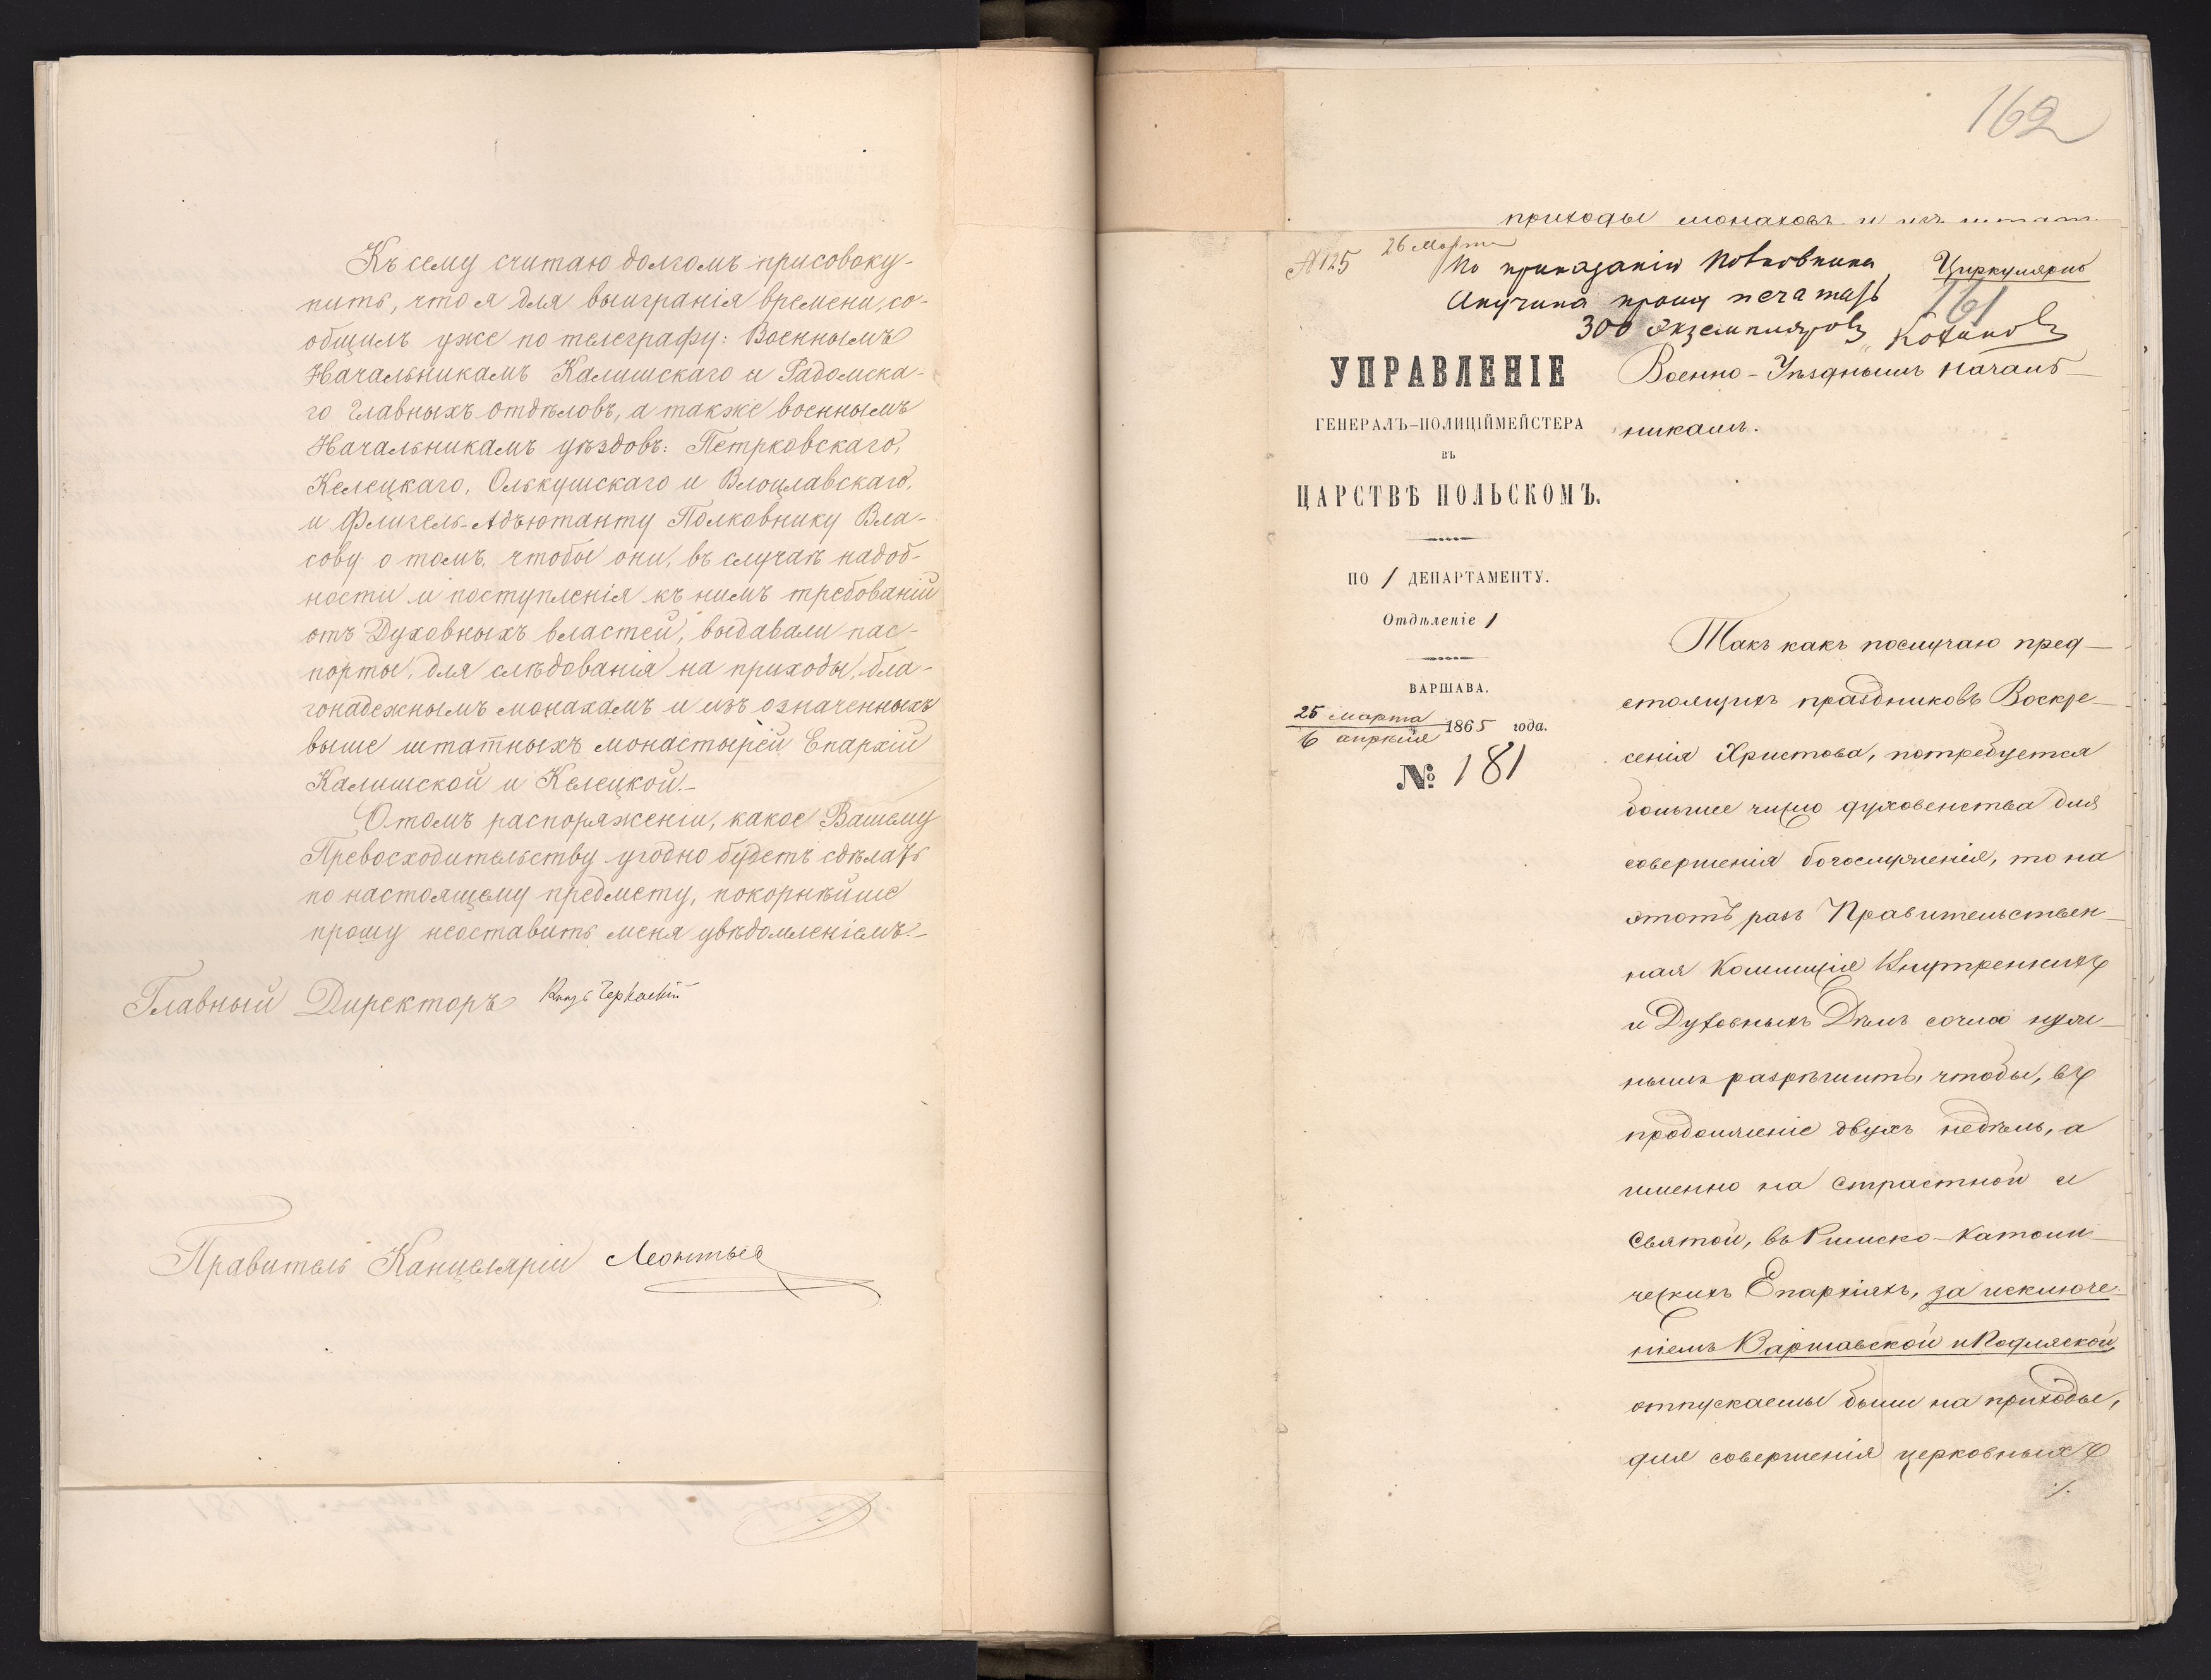 Къ сему считаю долгомъ присовоку-
пить, что я для выигранія времени, со-
общилъ уже по телеграфу: Военнымъ
Начальникамъ Калишскаго и Радомска-
го Главныхъ отдѣловъ, а также военнымъ
Начальникамъ уѣздовъ: Петрковскаго,
Келецкаго, Олькушскаго и Влоцлавскаго,
и Флигель-Адъютанту Полковнику Вла-
сову о томъ, чтобы они, въ случаѣ надоб-
ности и поступленія къ нимъ требованій
отъ Духовныхъ властей, выдавали пас-
порты, для слѣдованія на приходы, бла-
гонадежнымъ монахамъ и изъ означенныхъ
выше штатныхъ монастырей Епархій
Калишской и Келецкой.-
О томъ распоряженіи, какое Вашему
Превосходительству угодно будетъ сдѣлать
по настоящему предмету, покорнѣйше
прошу неоставить меня увѣдомленіемъ.-
Главный Директоръ Князь Черкаскій
Правитель Канцеляріи Леонтьев
162
приходы монаховъ и изъ штат
№125 26 Марта
По приказанію Полковника
Анучина прошу печатать
300 экземпляровъ
Циркулярно
161
УПРАВЛЕНІЕ
ГЕНЕРАЛЪ-ПОЛИЦІЙМЕЙСТЕРА
ВЪ
ЦАРСТВѢ ПОЛЬСКОМЪ.
ПО 1 ДЕПАРТАМЕНТУ.
Отдѣленіе 1
ВАРШАВА.
25 марта
6 апрѣля 1865 года.
№ 181
Военно-Уѣзднымъ Началь-
никамъ.
Такъ какъ послучаю пред-
стоящихъ праздниковъ Воскре-
сенія Христова, потребуется
большее число духовенства для
совершенія богослуженія, то на
этотъ разъ Правительствен-
ная Коммиція Внутреннихъ
и Духовныхъ Дѣлъ сочла нуж-
нымъ разрѣшить, чтобы, въ
продолженіе двухъ недѣль, а
именно на Страстной и
Святой, въ Римско-Католи-
ческихъ Епархіяхъ, за исключе-
ніемъ Варшавской и Подляской,
отпускаемы были на приходы,
для совершенія церковныхъ
./.